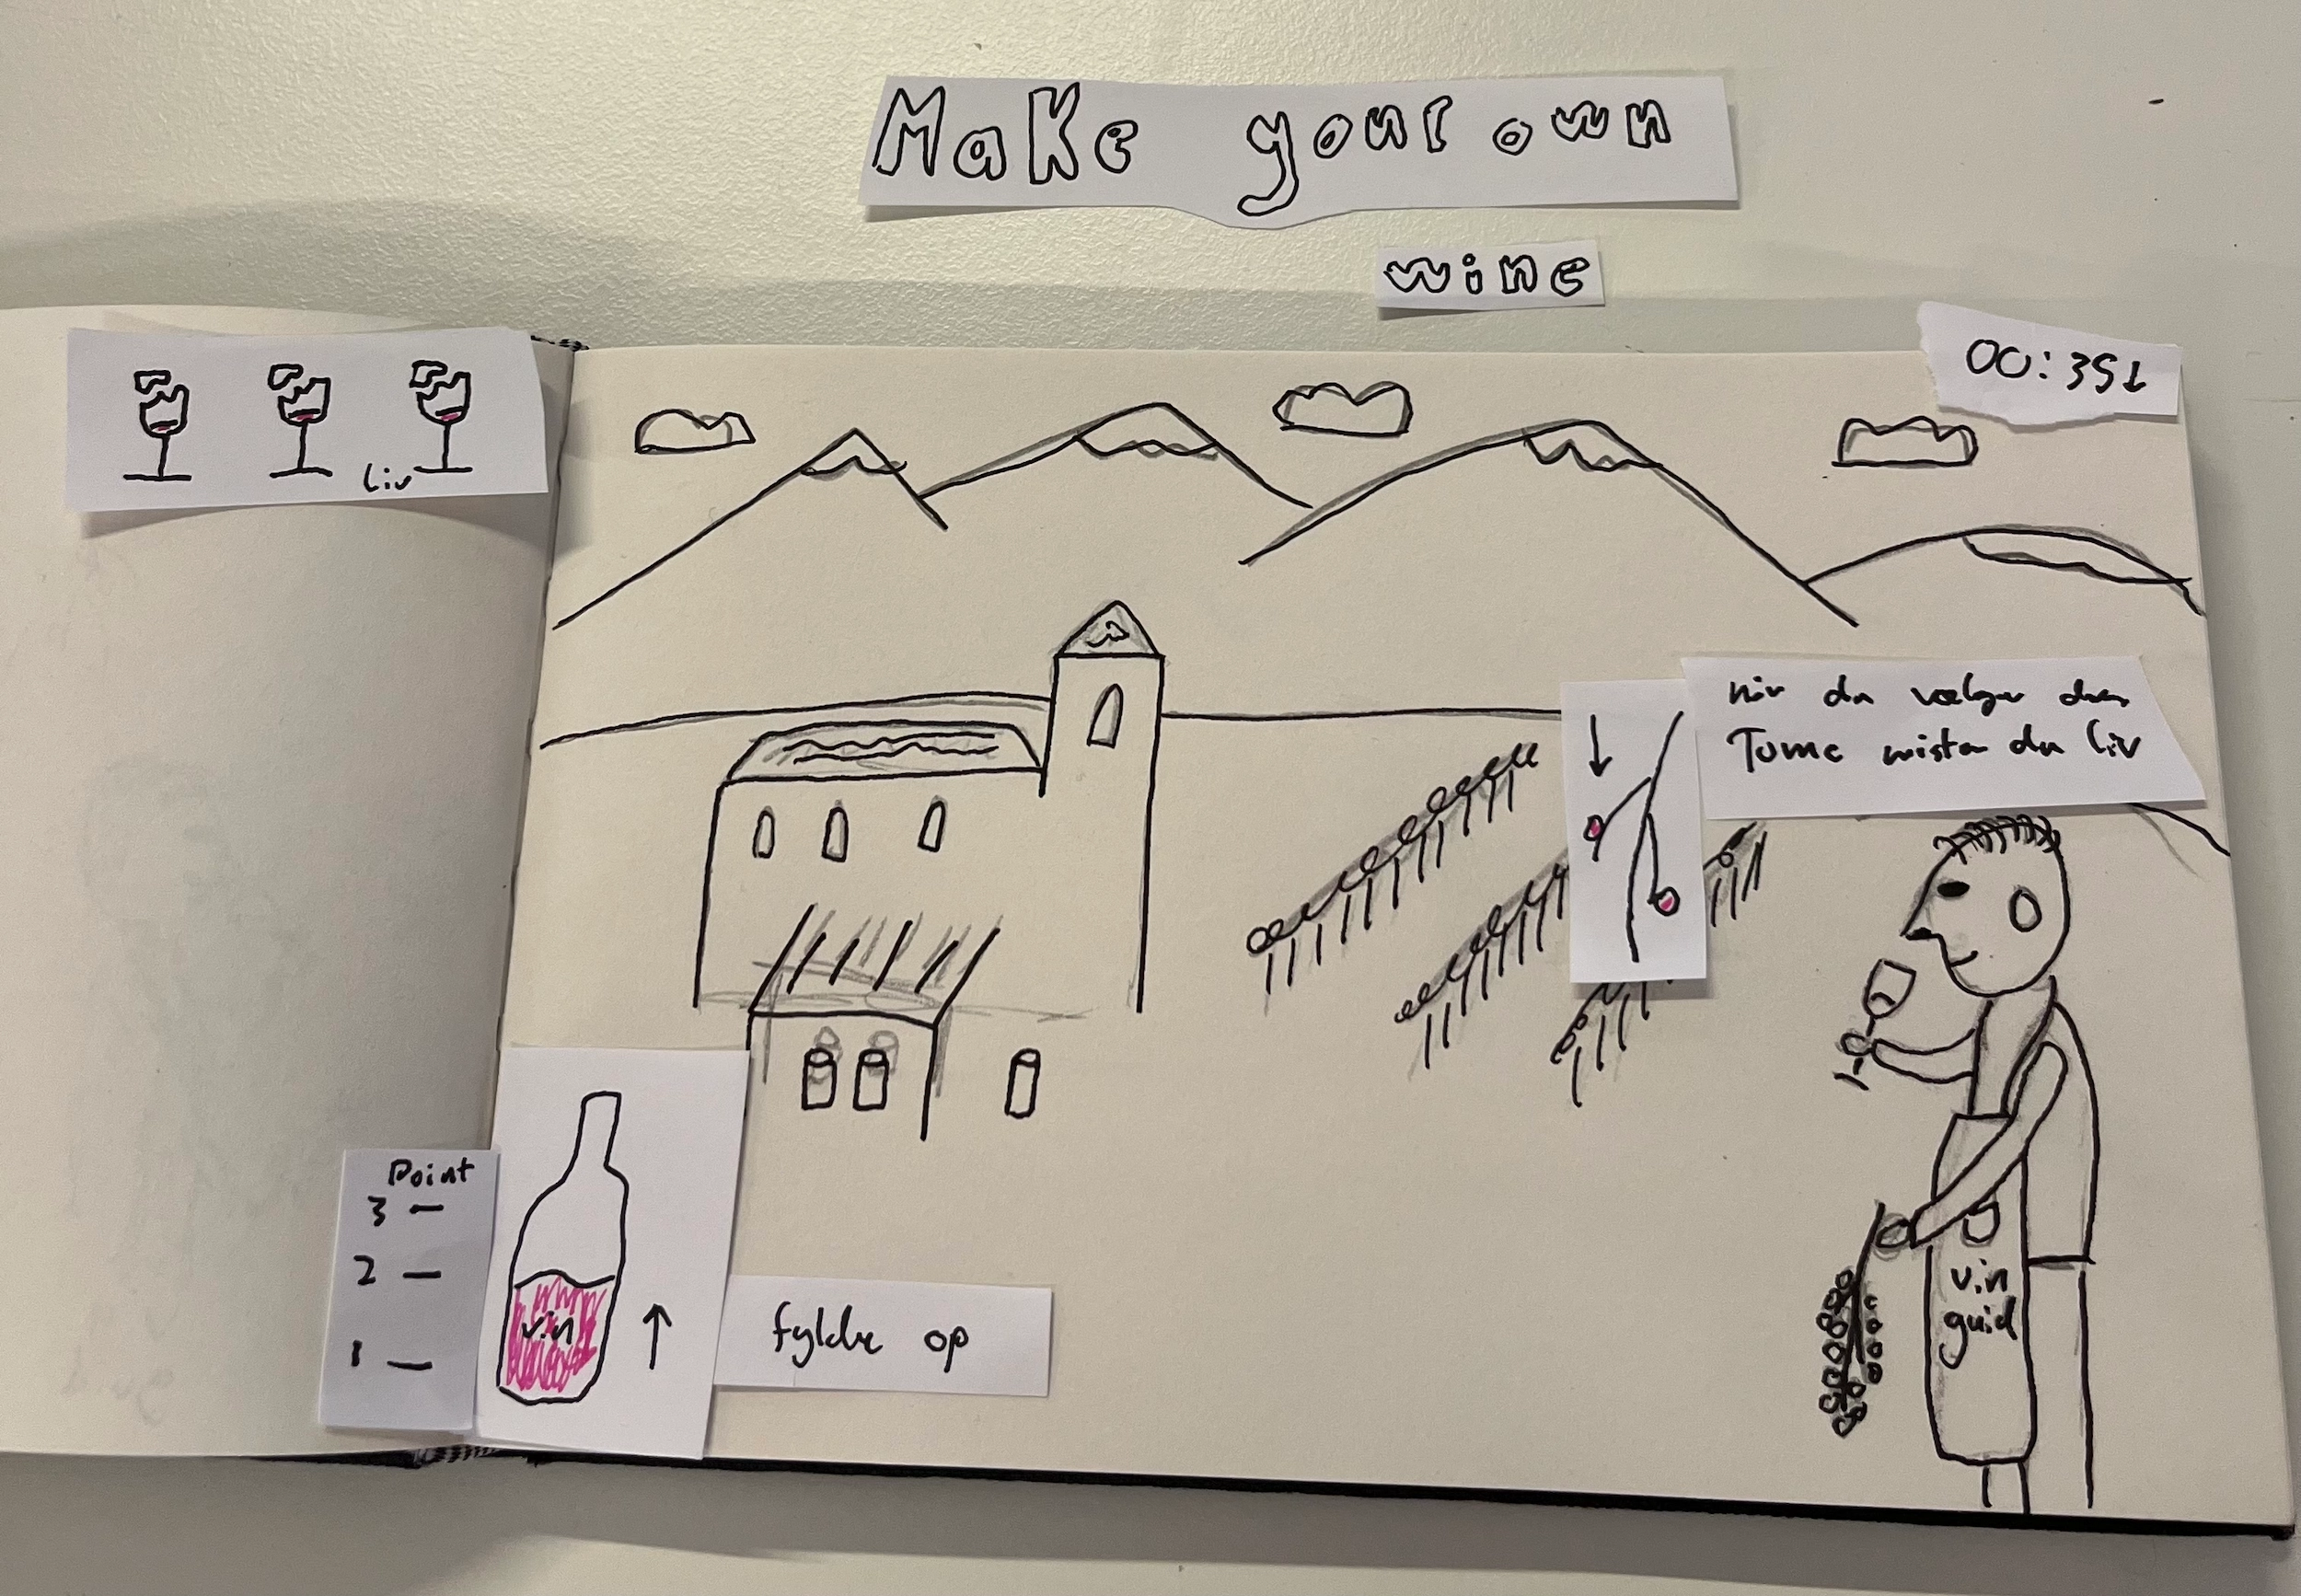 Make your own
wine
00:35
liv
når du vælger den
Tome mister du liv
Point
3
2
1
vin
fylde op
vin
guid